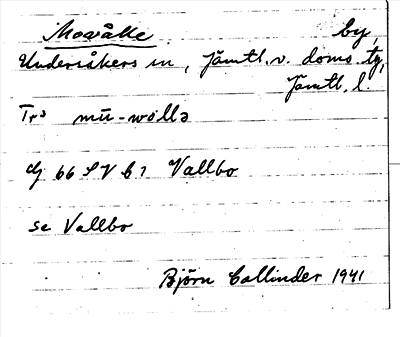 Movålle by,
Undersåkers sn, Jämtl. v. doms. tg,
Jämtl. l.
Trs mū-wo̊llə
Cf 66 SV b 1 Vallbo
se Vallbo
Björn Collinder 1941